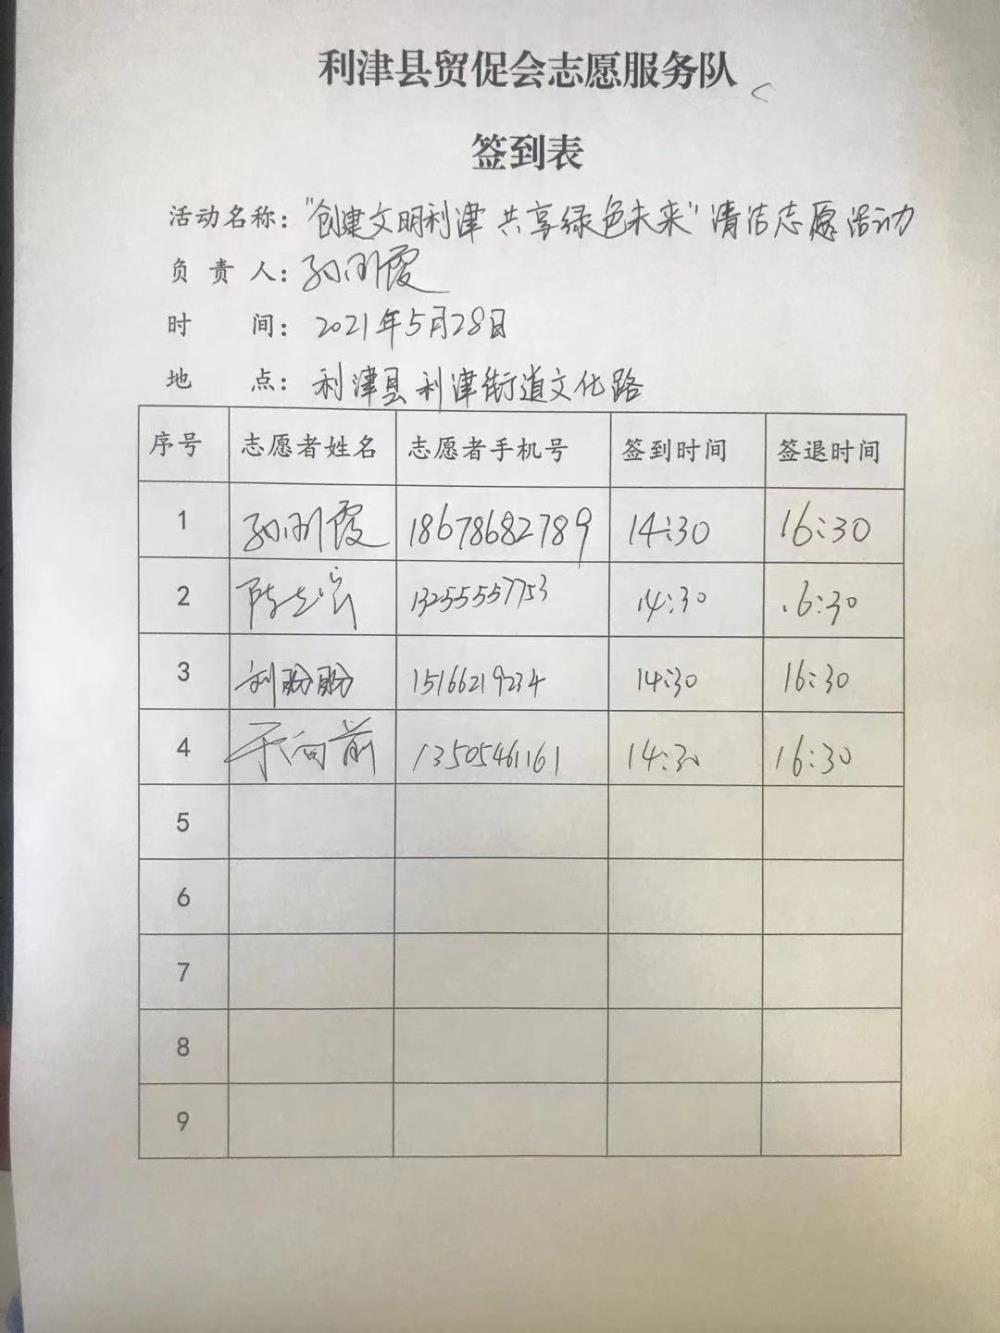 利津县贸促会志愿服务队
签到表
活动名称："创建文明利津 共享绿色未来"清洁志愿活动
负责人：孙
时间：2021年5月28日
地点：利津县利津街道文化路
序号 志愿者姓名 志愿者手机号 签到时间 签退时间
1 孙 霞 18678682789 14:30 16:30
2 陈 13255557753 14:30 16:30
3 刘盼盼 15166219234 14:30 16:30
4 于向前 13505461161 14:30 16:30
5
6
7
8
9